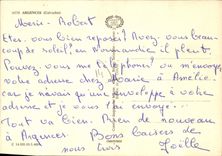 14370 ARGENCES (Calvados)
Marie-Robert
Etes-vous bien reposés? Avez-vous beau-
coup de soleil, en Normandie il pleut.
Pouvez-vous me téléphoner ou m'envoyer
votre adresse chez Marie à Amélie.
car je n'avais qu'une enveloppe à votre
adresse et je vous l'ai envoyé...
Tout va bien. Rien de nouveau
à Argences. Bons baisers de
nous trois Joëlle